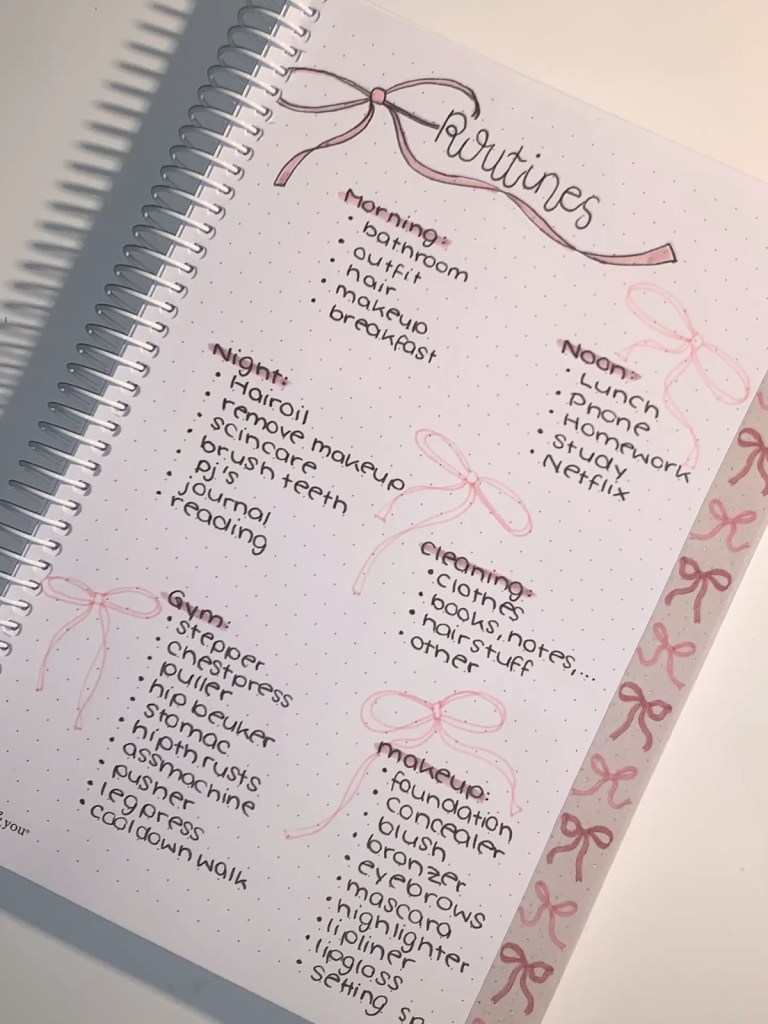 Routines
Morning:
• bathroom
• outfit
• hair
• makeup
• breakfast
Noon:
• Lunch
• Phone
• Homework
• study
• Netflix
Night:
• Hairoil
• remove makeup
• scincare
• brush teeth
• pj's
• journal
• reading
cleaning:
• clothes
• books, notes,...
• hairstuff
• other
Gym:
• stepper
• chestpress
• puller
• hip beuker
• stomac
• hipthrusts
• assmachine
• pusher
• legpress
• cooldown walk
makeup:
• foundation
• concealer
• blush
• bronzer
• eyebrows
• mascara
• highlighter
• lipliner
• lipgloss
• setting
you®